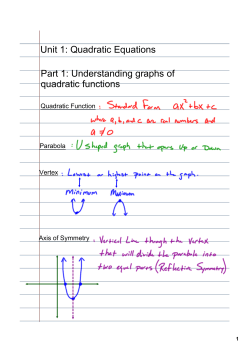 Unit 1: Quadratic Equations
Part 1: Understanding graphs of
quadratic functions
Quadratic Function : Standard Form ax²+bx+c
where a, b, and c are real numbers and
a ≠ 0
Parabola : U shaped graph that opens Up or Down
Vertex : Lowest or highest point on the graph.
Minimum Maximum
Axis of Symmetry : Vertical Line through the Vertex
that will divide the parabola into
two equal pares (Reflective Symmetry)
1